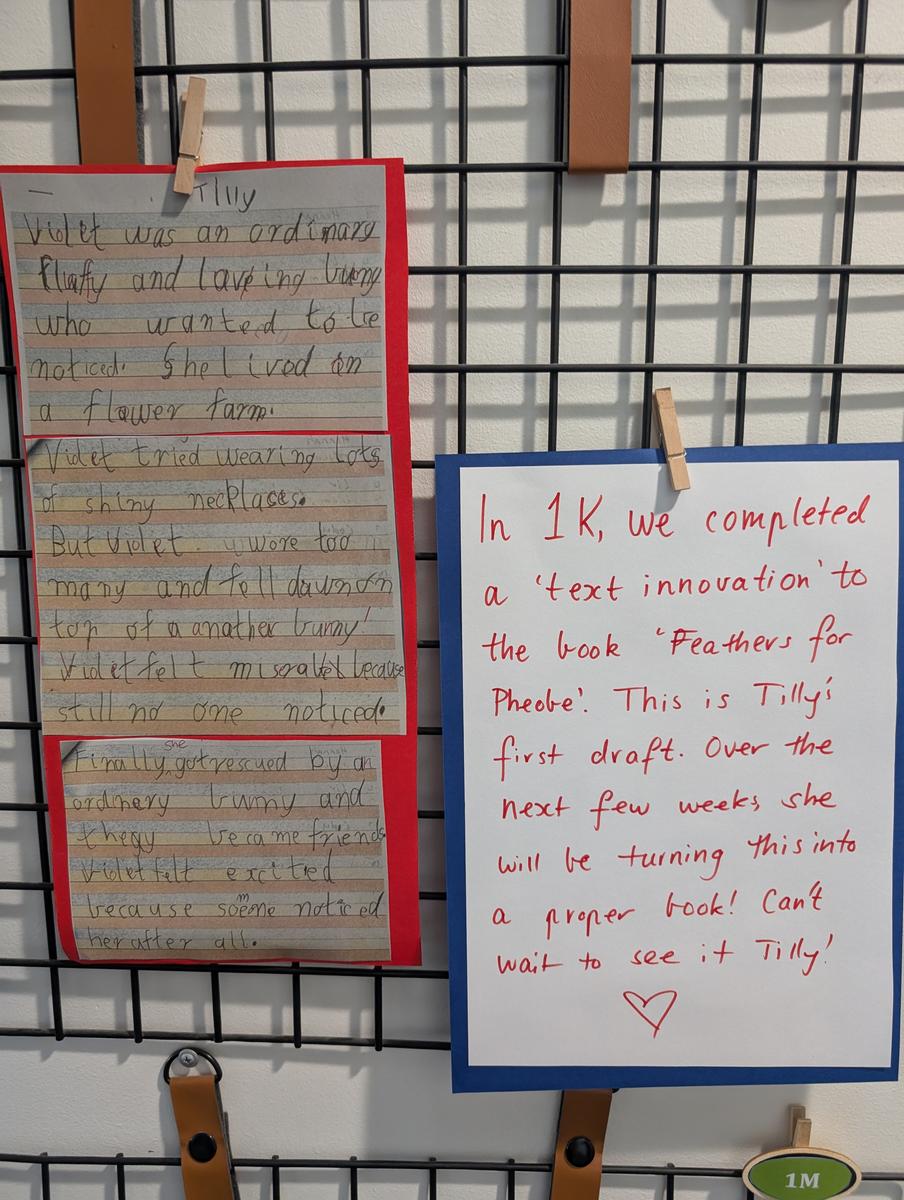 Tilly
Violet was an ordinary
fluffy and loveing bunny
who wanted to be
noticed. She lived on
a flower farm.
Violet tried wearing lots
of shiny necklaces.
But Violet wore too
many and fell down on
top of a another bunny!
Violet felt because
still no one noticed.
she
Finally, got rescued by an
ordinery bunny and
thegy became friends
Violet felt excited
because someone noticed
her after all.
In 1K, we completed
a 'text innovation' to
the book 'Feathers for
Pheobe'. This is Tilly's
first draft. Over the
next few weeks, she
will be turning this into
a proper book! Can't
wait to see it Tilly!
1M